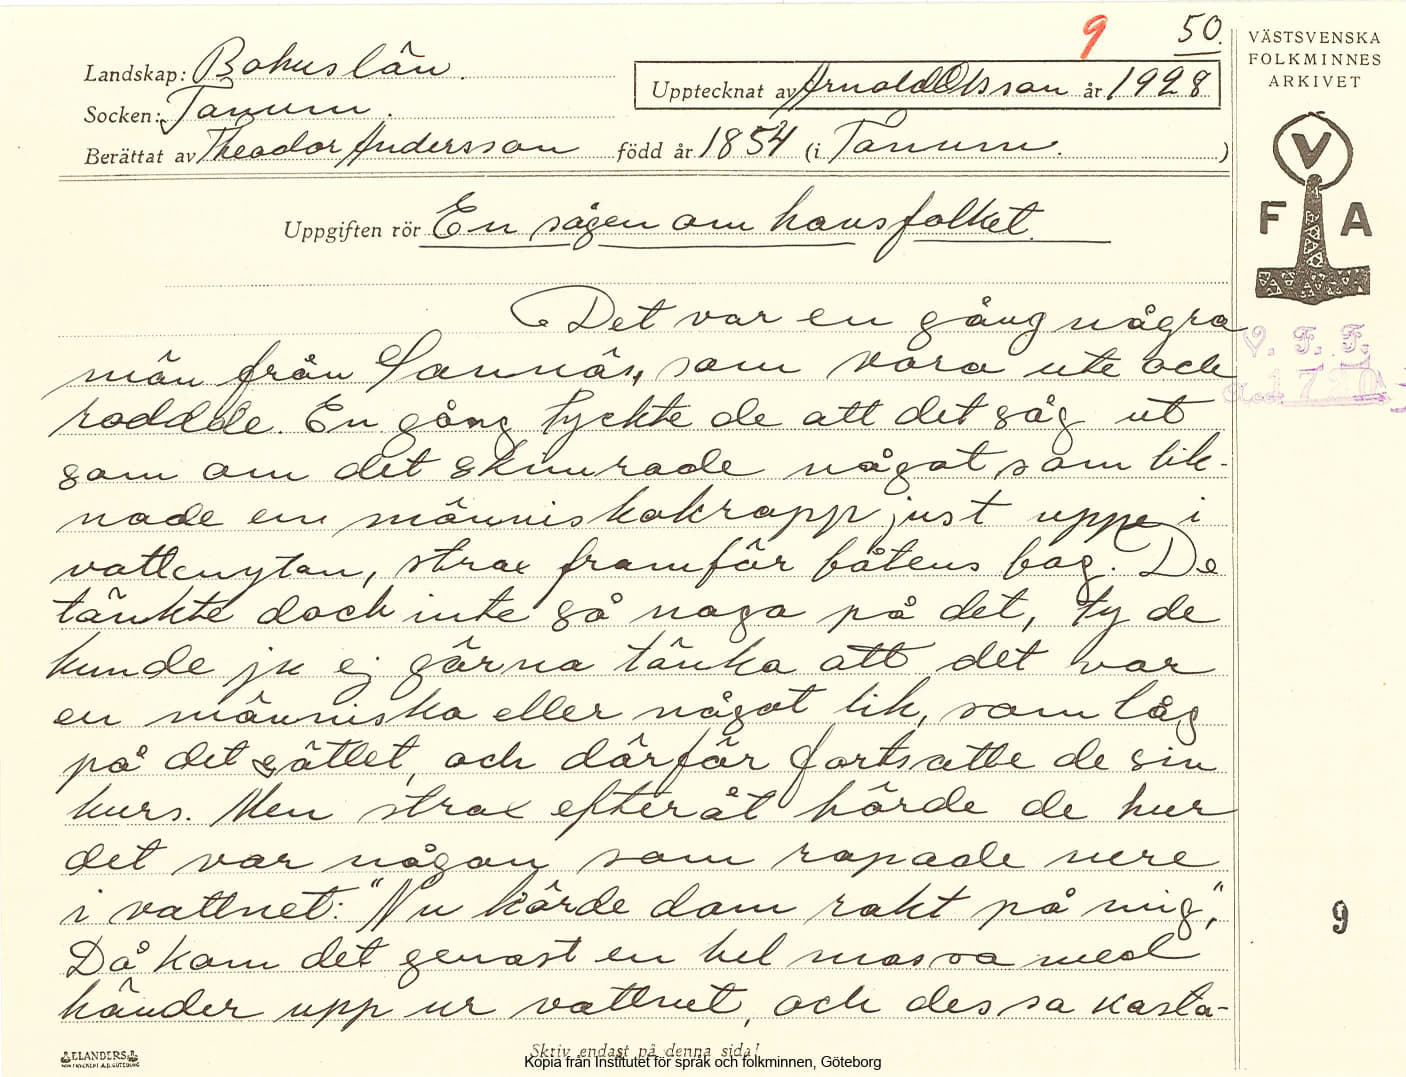 9 50.
Landskap: Bohuslän.
Upptecknat av Arnold Olsson år 1928
Socken: Tanum.
Berättat av Theodor Andersson född år 1854 (i Tanum. )
Uppgiften rör En sägen om havsfolket.
Det var en gång några
män från Sannäs, som voro ute och
rodde. En gång tyckte de att det såg ut
som om det skimrade något som lik-
nade en människokropp just uppe i
vattenytan, strax framför båtens bog. De
tänkte doch inte så noga på det, ty de
kunde ju ej gärna tänka att det var
en människa eller något lik, som låg
på det sättet, och därför fortsatte de sin
kurs. Men strax efteråt hörde de hur
det var någon som ropade nere
i vattnet: "Nu körde dom rakt på mig",
Då kom det genast en hel massa med
händer upp ur vattnet, och dessa kasta-
VÄSTSVENSKA
FOLKMINNES
ARKIVET
V
F A
V. F. F.
9
ELANDERS
Skriv endast på denna sida!
Kopia från Institutet för språk och folkminnen, Göteborg